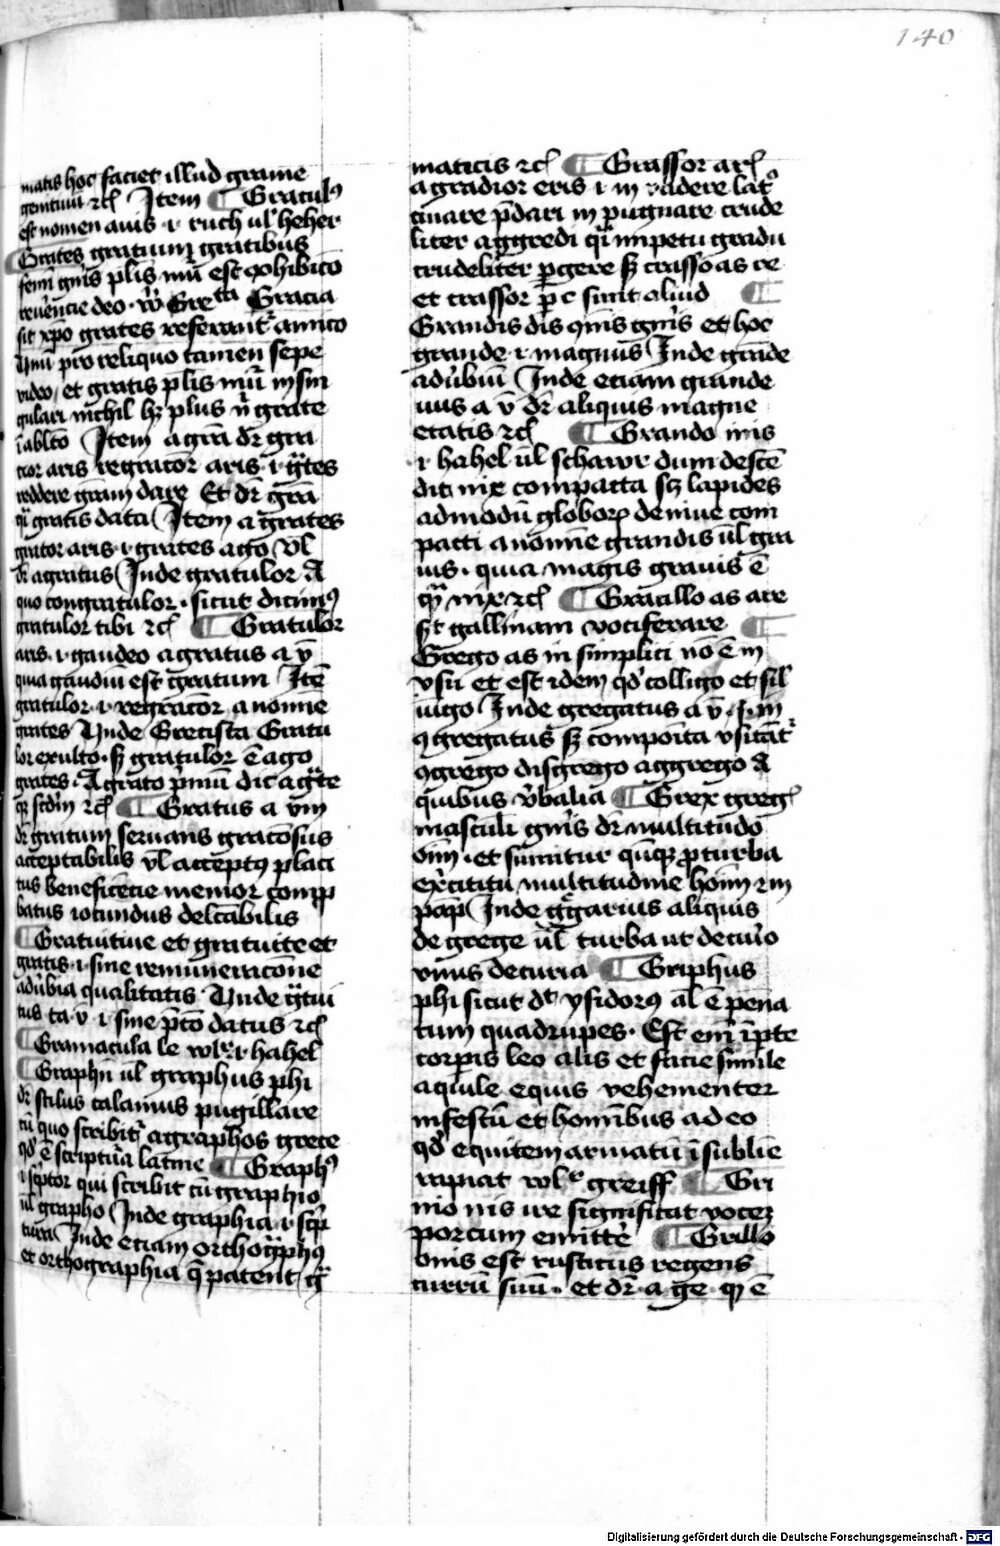 140
matis hoc faciet illud grame
genitiuū ⁊cꝭ Item Gracul᷒
est nomen auis ·i· ruch ul̕ heher
Grates gratium gratibus
femī gn̄is pl̄is nūi est ꝓhibito
reuēncie deo · vn̄ Gre ta Gracia
sit xp̄o grates referant᷑ amico
Unū pro reliquo tamen sepe
video et gratis pl̄is nūi in sin
gulari nichil hȝ plus nͥ grate
ī ablt̄o Item a gr̄a dr̄ gra
tior aris regracior aris ·i· gͣtes
reddere gr̄am dare Et dr̄ gr̄a
qͥ gratis data Item a grates
grator aris ·i· grates ago vl̄
dr̄ a gratus Inde gratulor A
quo congratulor · sicut dicim᷒
gratulor tibi ⁊cꝭ Gratulor
aris ·i· gaudeo a gratus a v̄
quia gaudiū est gratum Itē
gratulor ·i· regracior a nomīe
grates Unde Grecista Gratu
lor exulto · sȝ gratulor ē ago
grates · A grato p̄mū dic agͣte
scd̄m ⁊cꝭ Gratus a vm
dr̄ gratum seruans graciosus
acceptabilis vl̄ accept᷒ placi
tus beneficēcie memor comp
batus iocundus delcābilis
Gratuitiue et gratuite et
gratis ·i· sine remuneracōne
adūbia qualitatis Unde gͣtui
tus ta v̄ ·i· sine p̄cō datus ⁊cꝭ
Gramacula le ·i· hahel
Graphiū ul̄ graphus phi
dr̄ stilus calamus pugillare
cū quo scribit᷑ a graphos grece
qd̕ ē scriptura latine Graph᷒
·i· sc̕ptor qui scribit cū graphio
ul̄ grapho Inde graphia ·i· sc̕p
tura Inde etiam orthogͣph᷒
et orthographia q̄ patent
maticis ⁊cꝭ Grassor arꝭ
a gradior eris ·i· in vadere lat᷑o
cinare p̄dari in pugnare crude
liter aggredi qͥ impetu gradu
crudeliter ꝑgere sȝ crasso as re
et crassor ꝑ c sunt aliud
Grandis dis ꝯnis gn̄is et hoc
grande ·i· magnus Inde grāde
adūbiū Inde etiam grande
uus a v̄ dr̄ aliquis magne
etatis ⁊cꝭ Grando inis
·i· hahel ul̄ schawr dum descē
dit nix compacta sȝ lapides
ad modū globorꝝ de niue com
pacti a nomīe grandis ul̄ gra
uis · quia magis grauis ē
qͣȝ nix ⁊cꝭ Gracillo as are
sīt gallinam vociferare
Grego as in simplici nō ē in
vsu et est idem qd̕ colligo et sil̕
iūgo Inde gregatus a v̄ ·i· in
ꝯgregatus sȝ compoīta vsitāt᷑
ꝯgrego disgrego aggrego A
quibus v̄balia Grex gregꝭ
masculi gn̄is dr̄ multitudo
oīm · et sumitur qūqȝ ꝓ turba
ex̕cititu multitudine hoīm ⁊ in
Inde gͣgarius aliquis
de grege ul̄ turba ut decuͥo
vnius decuria Griphus
phi sicut dt̄ ysidor᷒ al̄ ē pēna
tum quadrupes · Est em̄ ī p̄te
corpis leo alis et facie simile
aquile equis vehementer
infestū et homībus ad eo
qd̕ equitem armatū ī sublīe
rapiat greiff Gri
nio nis ire significat vocez
porcum emitte᷑ Grillo
onis est rusticus regens
currū suū · et dr̄ a ge · qꝛ ē
Digitalisierung gefördert durch die Deutsche Forschungsgemeinschaft - DFG